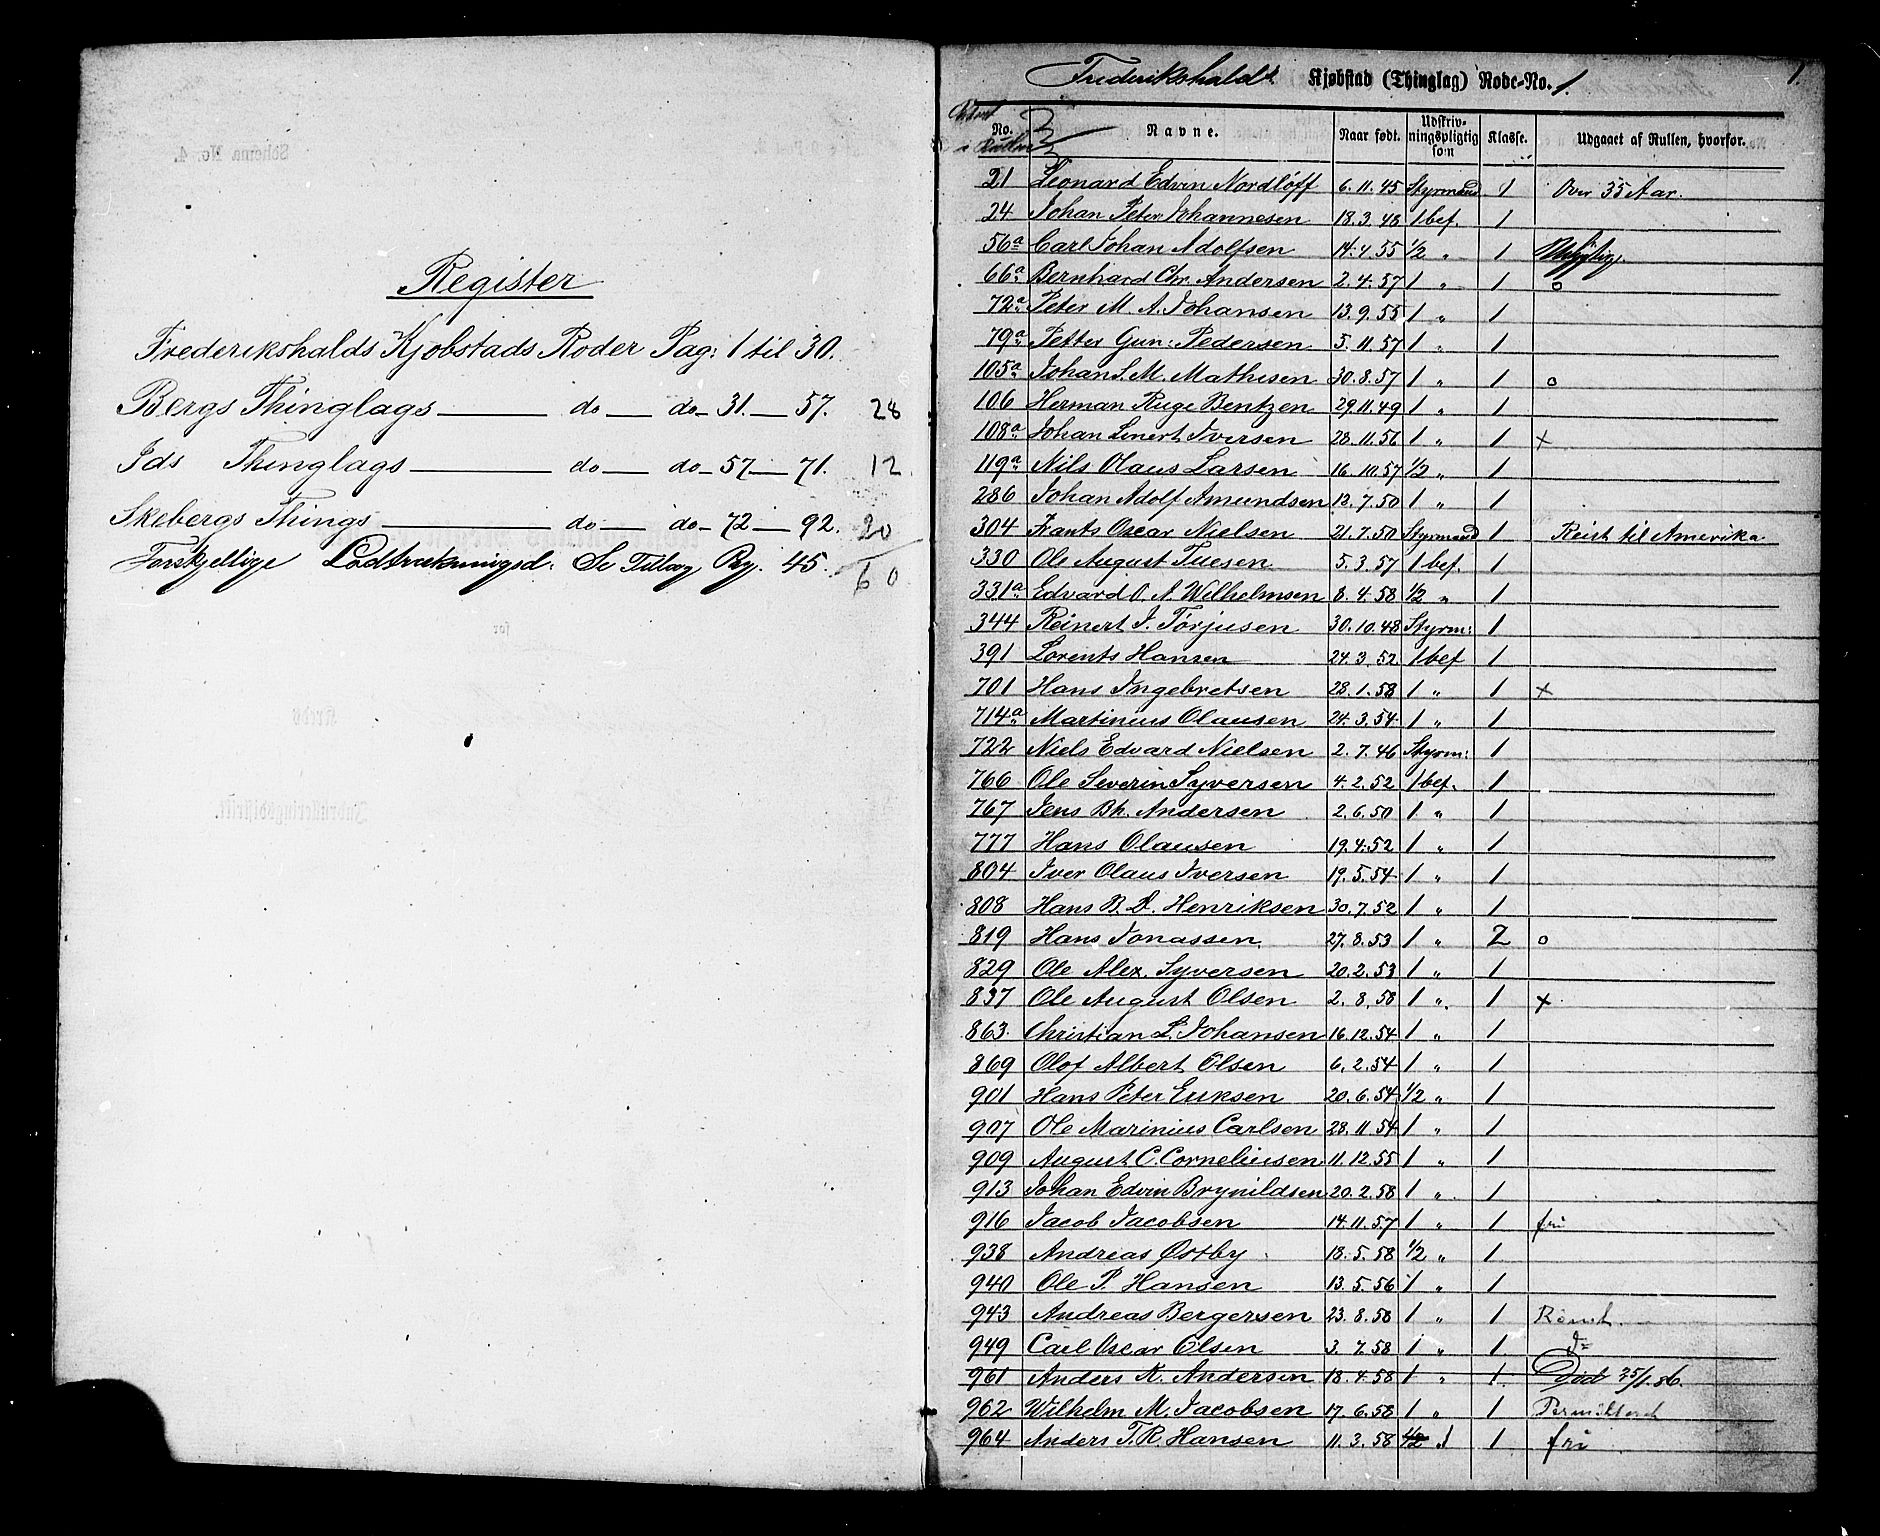 Register
Frederikshalds Kjøbstads Roder Pag: 1 til 30.
Bergs Thinglags do do 31. 57. 28
Ids Thinglags do do 57 71. 12
Skebergs Things do do 72 92. 20
Forskjellige Lodtrækningsd. Se Tillæg Pag. 45.
60
Frederikshalds Kjøbstad (Thinglag) Rode-No. 1. 1.
No. i Rullen Navne. Naar født. Udskrivningspligtig som Klasse. Udgaaet af Rullen, hvorfor.
21 Leonard Edvin Nordlöff 6.11.45 Styrmand 1 Over 35 Aar.
24 Johan Peter Johannesen 18.3.48 1 bef. 1
56a Carl Johan Adolfsen 14.4.55 1/2 " 1
66a Bernhard Chr. Andersen 2.4.57 1 " 1 o
72a Peter M. A. Johansen 13.9.55 1 " 1
79a Petter Gun: Pedersen 5.11.57 1 " 1
105a Johan S. M. Mathisen 30.8.57 1 " 1 o
106 Herman Ruge Bentzen 29.11.49 1 " 1
108a Johan Lenert Iversen 28.11.56 1 " 1 x
119a Nils Olaus Larsen 16.10.57 1/2 " 1
286 Johan Adolf Amundsen 13.7.50 1 " 1
304 Frants Oscar Nielsen 21.7.50 Styrmand 1 Reist til Amerika
330 Ole August Tuesen 5.3.57 1 bef. 1
331a Edvard O. A. Wilhelmsen 8.4.58 1/2 " 1
344 Reinert J. Torjusen 30.10.48 Styrm: 1
391 Lorents Hansen 24.3.52 1 bef 1
701 Hans Ingebretsen 28.1.58 1 " 1 x
714a Martinius Olausen 24.3.54 1 " 1
722 Niels Edvard Nielsen 2.7.46 Styrm: 1
766 Ole Severin Syversen 4.2.52 1 bef. 1
767 Jens Bh. Andersen 2.6.50 1 " 1
777 Hans Olausen 19.4.52 1 " 1
804 Iver Olaus Iversen 19.5.54 1 " 1
808 Hans B. D. Henriksen 30.7.52 1 " 1
819 Hans Jonassen 27.8.53 1 " 2 o
829 Ole Alex. Syversen 20.2.53 1 " 1
837 Ole August Olsen 2.8.58 1 " 1 x
863 Christian L. Johansen 16.12.54 1 " 1
869 Olof Albert Olsen 6.2.54 1 " 1
901 Hans Peter Eriksen 20.6.54 1/2 " 1
907 Ole Marinius Carlsen 28.11.54 1 " 1
909 August C. Corneliusen 11.12.55 1 " 1
913 Johan Edvin Brynildsen 20.2.58 1 " 1
916 Jacob Jacobsen 14.11.57 1 " 1 fri
938 Andreas Østby 18.5.58 1/2 " 1
940 Ole P. Hansen 13.5.56 1 " 1
943 Andreas Bergersen 23.8.58 1 " 1 Römt.
949 Carl Oscar Olsen 3.7.58 1 " 1 do
961 Anders K. Andersen 18.4.58 1 " 1. Død 25/1.86.
962 Wilhelm M. Jacobsen 17.6.58 1 " 1 Permitteret
964 Anders T. R. Hansen 11.3.58 1/2 " 1 1 fri